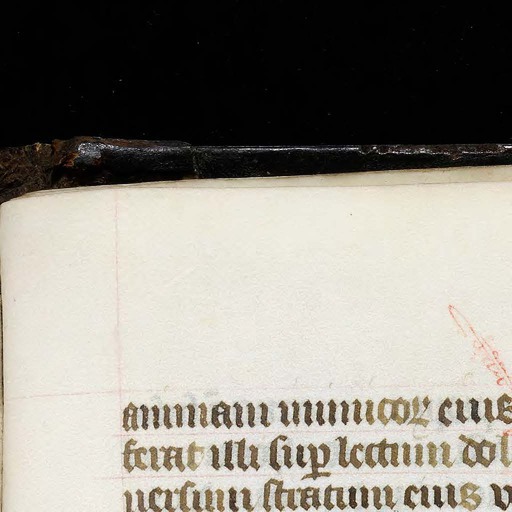 animam inimicoꝝ eius
ferat illi suꝑ lectum dol
uersum stratum eius v